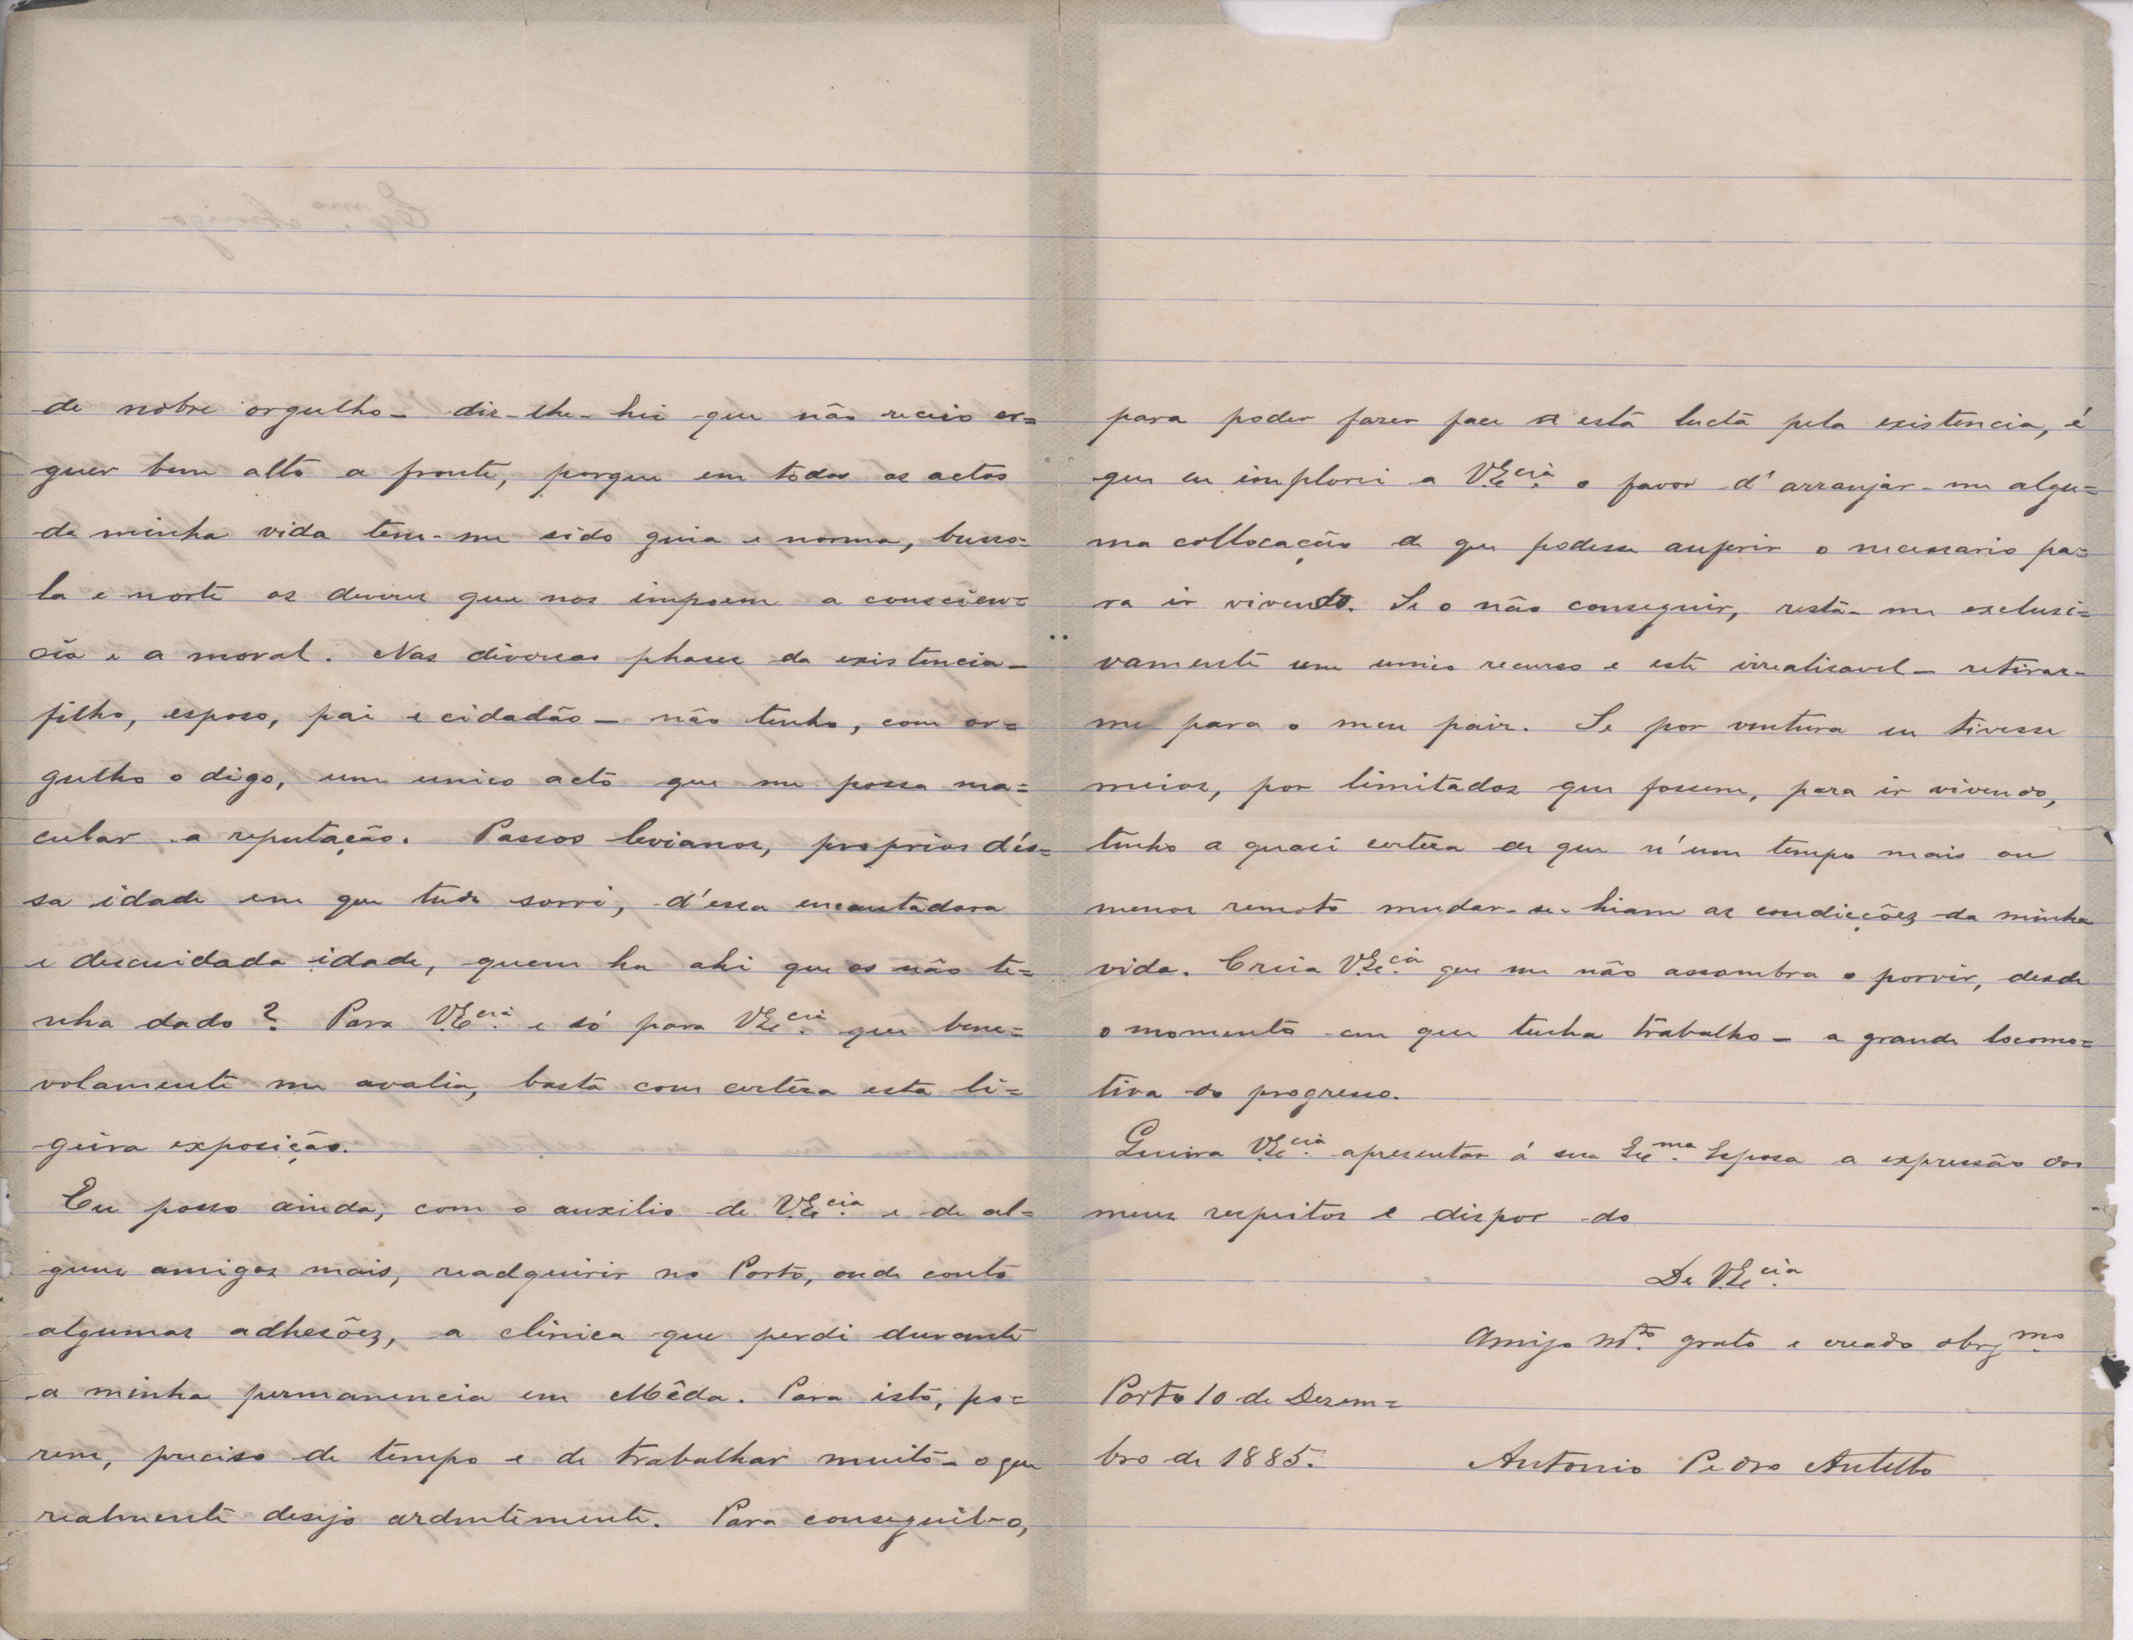 de nobre orgulho_ dir-lhe-hei que não receio er=
guer bem alto a fronte, porque em todos os actos
da minha vida tem-me sido guia e norma, busso=
la e norte os deveres que nos impoem a conscien=
cia e a moral. Nas diversas phases da existencia_
filho, esposo, pai e cidadão_ não tenho, com or=
gulho o digo, um unico acto que me possa ma=
cular a reputação. Passos levianos, proprios d'es=
sa idade em que tudo sorri, d'essa encantadora
e descuidada idade, quem ha ahi que os não te=
nha dado? Para V.Ex.cia e só para V.Ex.cia que bene=
volamente me avalia, basta com certeza esta li=
geira exposição.
Eu posso ainda, com o auxilio de V.Ex.cia e de al=
guns amigos mais, readquirir no Porto, onde conto
algumas adhesões, a clinica que perdi durante
a minha permanencia em Mêda. Para isto, po=
rem, preciso de tempo e de trabalhar muito_ o que
realmente desejo ardentemente. Para conseguil-o,
para poder fazer face a esta lucta pela existencia, é
que eu implorei a V.Ex.cia o favor d'arranjar-me algu=
ma collocação de que podesse auferir o necessario pa=
ra ir vivendo. Se o não conseguir, resta-me exclusi=
vamente um unico recurso e este irrealisavel_ retirar-
me para o meu paiz. Se por ventura eu tivesse
meios, por limitados que fossem, para ir vivendo,
tenho a quasi certeza de que n'um tempo mais ou
menos remoto mudar-se-hiam as condicções da minha
vida. Creia V.Ex.cia que me não assombra o porvir, desde
o momento em que tenha trabalho_ a grande locomo=
tiva do progresso.
Queira V.Ex.cia apresentar á sua Ex.ma Esposa a expressão dos
meus respeitos e dispor do
De V.Ex.cia
Amigo m.to grato e creado obrg.mo
Porto 10 de Dezem=
bro de 1885.
Antonio Pedro Antello
Ex.mo Amigo